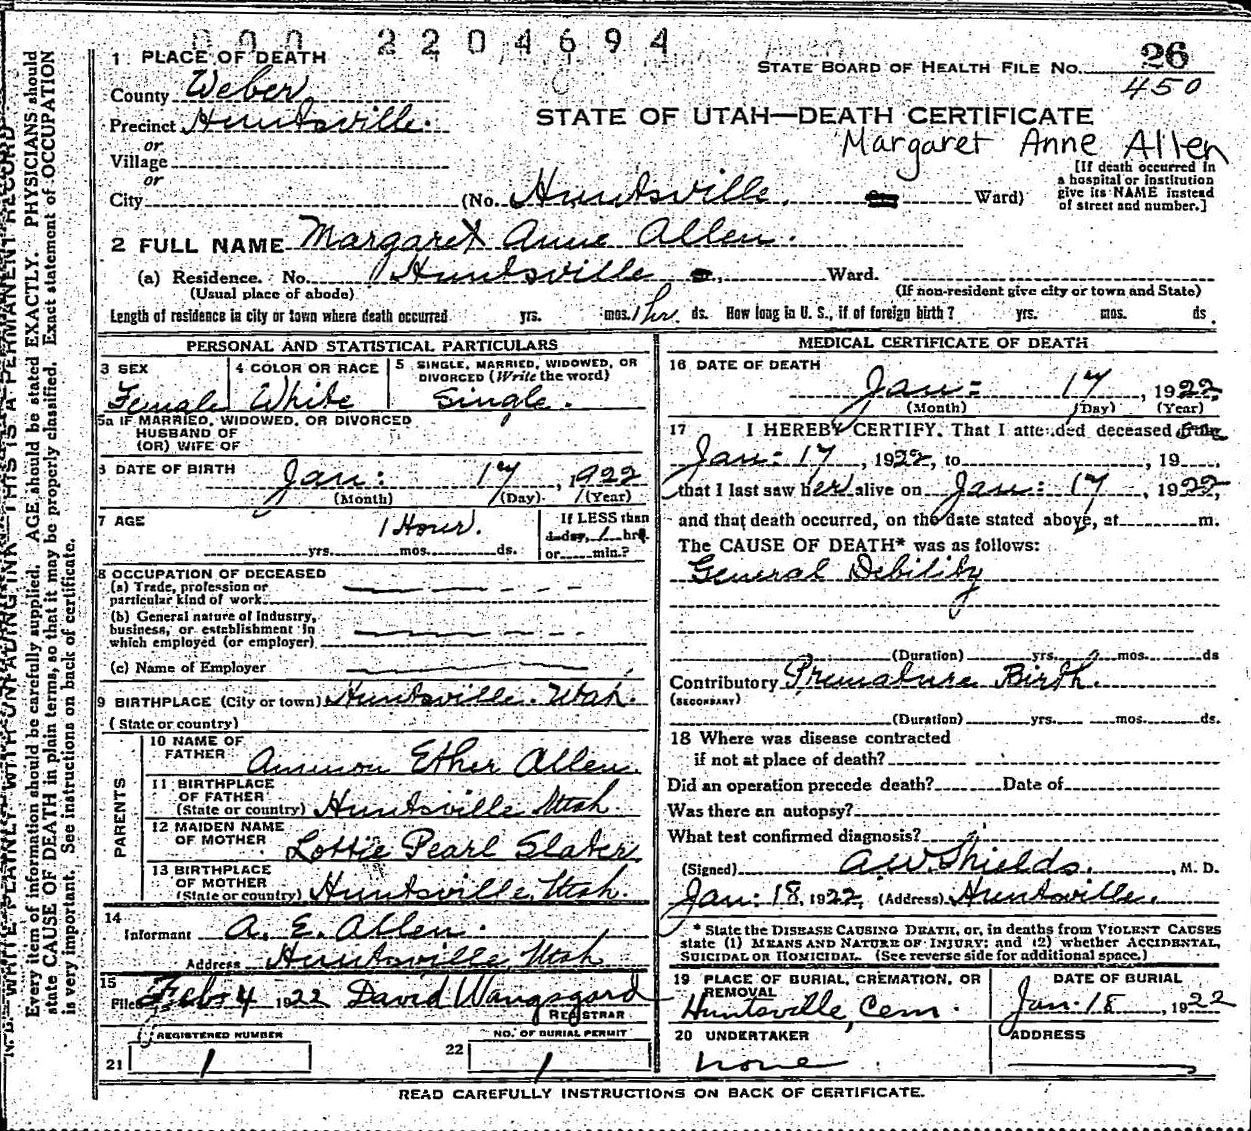 000 2204694
26
STATE BOARD OF HEALTH FILE No.
450
1 PLACE OF DEATH
County Weber
Precinct Huntsville.
or
Village
or
City
STATE OF UTAH—DEATH CERTIFICATE
Margaret Anne Allen
(No. Huntsville. Ward)
[If death occurred in
a hospital or institution
give its NAME instead
of street and number.]
2 FULL NAME Margaret Anne Allen.
(a) Residence. No. Huntsville Ward.
(Usual place of abode) (If non-resident give city or town and State)
Length of residence in city or town where death occurred yrs. mos. 1 hr. ds. How long in U. S., if of foreign birth? yrs. mos. ds.
PERSONAL AND STATISTICAL PARTICULARS
3 SEX
Female
4 COLOR OR RACE
White
5 SINGLE, MARRIED, WIDOWED, OR
DIVORCED (Write the word)
Single.
5a IF MARRIED, WIDOWED, OR DIVORCED
HUSBAND OF
(OR) WIFE OF
6 DATE OF BIRTH Jan: 17, 1922
(Month) (Day) (Year)
7 AGE 1 Hour.
yrs. mos. ds.
If LESS than
1 day, 1 hrs.
or min.?
8 OCCUPATION OF DECEASED
(a) Trade, profession or
particular kind of work
(b) General nature of industry,
business, or establishment in
which employed (or employer)
(c) Name of Employer
9 BIRTHPLACE (City or town) Huntsville. Utah.
(State or country)
PARENTS
10 NAME OF
FATHER Ammon Ether Allen.
11 BIRTHPLACE
OF FATHER
(State or country) Huntsville Utah.
12 MAIDEN NAME
OF MOTHER Lottie Pearl Slater
13 BIRTHPLACE
OF MOTHER
(State or country) Huntsville, Utah.
14
Informant A. E. Allen.
Address Huntsville, Utah
15
Filed Feb 4 1922 David Wangsgard
REGISTRAR
REGISTERED NUMBER
21 1
NO. OF BURIAL PERMIT
22 1
MEDICAL CERTIFICATE OF DEATH
16 DATE OF DEATH
Jan: 17, 1922
(Month) (Day) (Year)
17 I HEREBY CERTIFY, That I attended deceased from
Jan: 17, 1922, to , 19
that I last saw her alive on Jan: 17, 1922,
and that death occurred, on the date stated above, at m.
The CAUSE OF DEATH* was as follows:
General Debility
(Duration) yrs. mos. ds
Contributory Premature Birth.
(SECONDARY)
(Duration) yrs. mos. ds.
18 Where was disease contracted
if not at place of death?
Did an operation precede death? Date of
Was there an autopsy?
What test confirmed diagnosis?
(Signed) A.W. Shields., M. D.
Jan: 18, 1922, (Address) Huntsville.
* State the DISEASE CAUSING DEATH, or, in deaths from VIOLENT CAUSES
state (1) MEANS AND NATURE OF INJURY; and (2) whether ACCIDENTAL,
SUICIDAL OR HOMICIDAL. (See reverse side for additional space.)
19 PLACE OF BURIAL, CREMATION, OR
REMOVAL
Huntsville, Cem.
DATE OF BURIAL
Jan. 18, 1922
20 UNDERTAKER
none
ADDRESS
READ CAREFULLY INSTRUCTIONS ON BACK OF CERTIFICATE.
N. B.—WRITE PLAINLY WITH UNFADING INK—THIS IS A PERMANENT RECORD
Every item of information should be carefully supplied. AGE should be stated EXACTLY. PHYSICIANS should
state CAUSE OF DEATH in plain terms, so that it may be properly classified. Exact statement of OCCUPATION
is very important. See instructions on back of certificate.